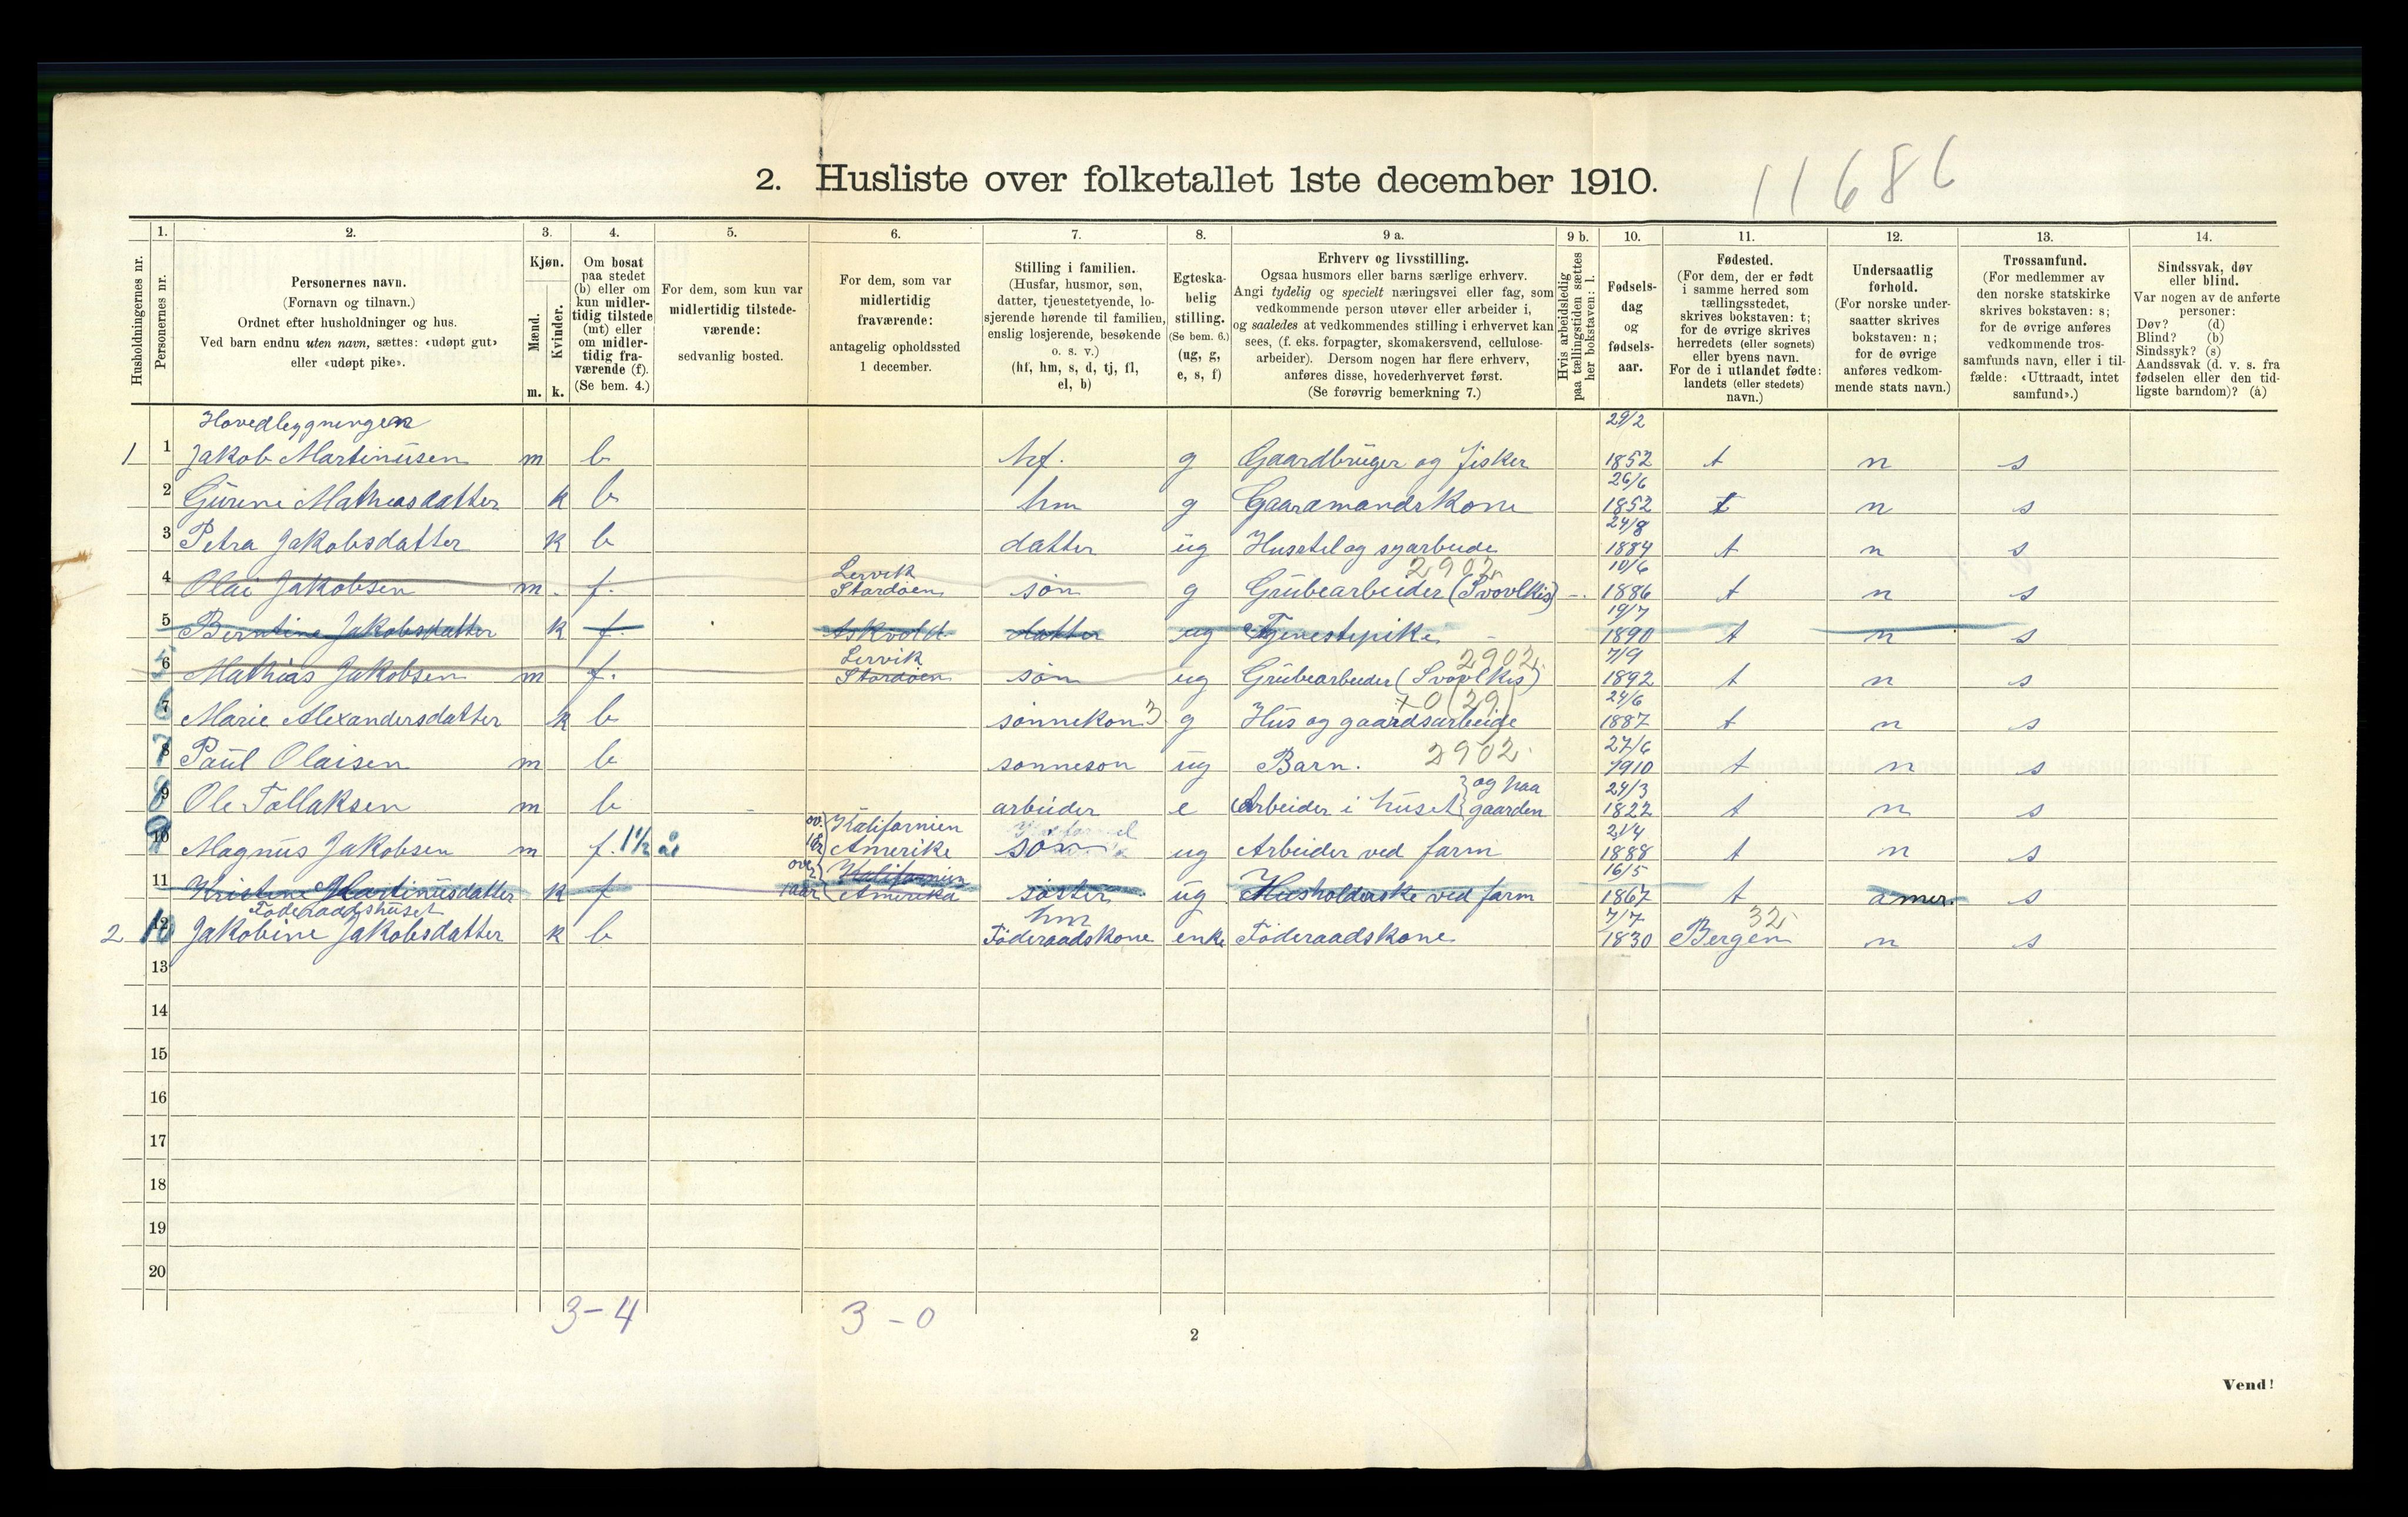 11686
2. Husliste over folketallet 1ste december 1910.
Husholdningernes nr.
1.
Personernes nr.
2.
Personernes navn.
(Fornavn og tilnavn.)
Ordnet efter husholdninger og hus.
Ved barn endnu uten navn, sættes: «udøpt gut»
eller «udøpt pike».
3.
Kjøn.
Mænd.
Kvinder.
m. k.
4.
Om bosat
paa stedet
(b) eller om
kun midler-
tidig tilstede
(mt) eller
om midler-
tidig fra-
værende (f).
(Se bem. 4.)
5.
For dem, som kun var
midlertidig tilstede-
værende:
sedvanlig bosted.
6.
For dem, som var
midlertidig
fraværende:
antagelig opholdssted
1 december.
7.
Stilling i familien.
(Husfar, husmor, søn,
datter, tjenestetyende, lo-
sjerende hørende til familien,
enslig losjerende, besøkende
o. s. v.)
(hf, hm, s, d, tj, fl,
el, b)
8.
Egteska-
belig
stilling.
(Se bem. 6.)
(ug, g,
e, s, f)
9 a.
Erhverv og livsstilling.
Ogsaa husmors eller barns særlige erhverv.
Angi tydelig og specielt næringsvei eller fag, som
vedkommende person utøver eller arbeider i,
og saaledes at vedkommendes stilling i erhvervet kan
sees, (f. eks. forpagter, skomakersvend, cellulose-
arbeider). Dersom nogen har flere erhverv,
anføres disse, hovederhvervet først.
(Se forøvrig bemerkning 7.)
9 b.
Hvis arbeidsledig
paa tællingstiden sættes
her bokstaven: l.
10.
Fødsels-
dag
og
fødsels-
aar.
11.
Fødested.
(For dem, der er født
i samme herred som
tællingsstedet,
skrives bokstaven: t;
for de øvrige skrives
herredets (eller sognets)
eller byens navn.
For de i utlandet fødte:
landets (eller stedets)
navn.)
12.
Undersaatlig
forhold.
(For norske under-
saatter skrives
bokstaven: n;
for de øvrige
anføres vedkom-
mende stats navn.)
13.
Trossamfund.
(For medlemmer av
den norske statskirke
skrives bokstaven: s;
for de øvrige anføres
vedkommende tros-
samfunds navn, eller i til-
fælde: «Uttraadt, intet
samfund».)
14.
Sindssvak, døv
eller blind.
Var nogen av de anførte
personer:
Døv? (d)
Blind? (b)
Sindssyk? (s)
Aandssvak (d. v. s. fra
fødselen eller den tid-
ligste barndom)? (å)
Hovedbyggningen 29/2
1 1 Jakob Martinusen m b hf. g Gaardbruger og fisker 1852 t n s
26/6
2 Gurine Mathiasdatter k b hm g Gaardmandskone 1852 t n s
24/8
3 Petra Jakobsdatter k b datter ug Husstel og syarbeide 1884 t n s
Lervik 2902 10/6
4 Olai Jakobsen m f. Stordøen søn g Grubearbeider (Svovlkis) 1886 t n s
19/7
5 Berntine Jakobsdatter k f. Askvold datter ug Tjenestepike 1890 t n s
Lervik 2902 7/9
5 6 Mathias Jakobsen m f. Stordøen søn ug Grubearbeider (Svovlkis) 1892 t n s
0 (29) 24/6
6 7 Marie Alexandersdatter k b sønnekone 3 g Hus og gaardsarbeide 1887 t n s
27/6
7 8 Paul Olaisen m b sønnesøn ug Barn. 2902 1910 t n s
og paa 24/3
8 9 Ole Tollaksen m b arbeider e Arbeider i huset gaarden 1822 t n s
ov. Kalifornien 21/4
9 10 Magnus Jakobsen m f. 1½ år 1½ Amerika søn ug Arbeider ved farm 1888 t n s
Kalifornien 16/5
11 Kristine Martinusdatter k f 1 aar Amerika søster ug Husholderske ved farm 1867 t amer. s
Føderaadshuset hm 7/7 32
2 10 12 Jakobine Jakobsdatter k b Føderaadskone enke Føderaadskone 1830 Bergen n s
13
14
15
16
17
18
19
20
3-4 3-0
2
Vend!